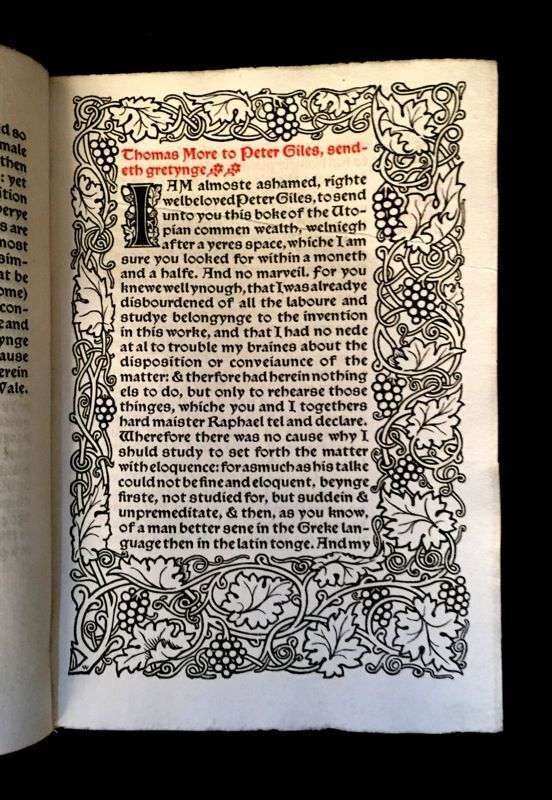 d so
male
then
: yet
ition
perye
s are
most
sim-
at be
ome)
con-
e and
ynge
ause
erein
Vale.
Thomas More to Peter Giles, send-
eth gretynge
I AM almoste ashamed, righte
welbeloved Peter Giles, to send
unto you this boke of the Uto-
pian commen wealth, welniegh
after a yeres space, whiche I am
sure you looked for within a moneth
and a halfe. And no marveil. For you
knewe well ynough, that I was alreadye
disbourdened of all the laboure and
studye belongynge to the invention
in this worke, and that I had no nede
at al to trouble my braines about the
disposition or conveiaunce of the
matter: & therfore had herein nothing
els to do, but only to rehearse those
thinges, whiche you and I togethers
hard maister Raphael tel and declare.
Wherefore there was no cause why I
shuld study to set forth the matter
with eloquence: forasmuch as his talke
could not be fine and eloquent, beynge
firste, not studied for, but suddein &
unpremeditate, & then, as you know,
of a man better sene in the Greke lan-
guage then in the latin tonge. And my